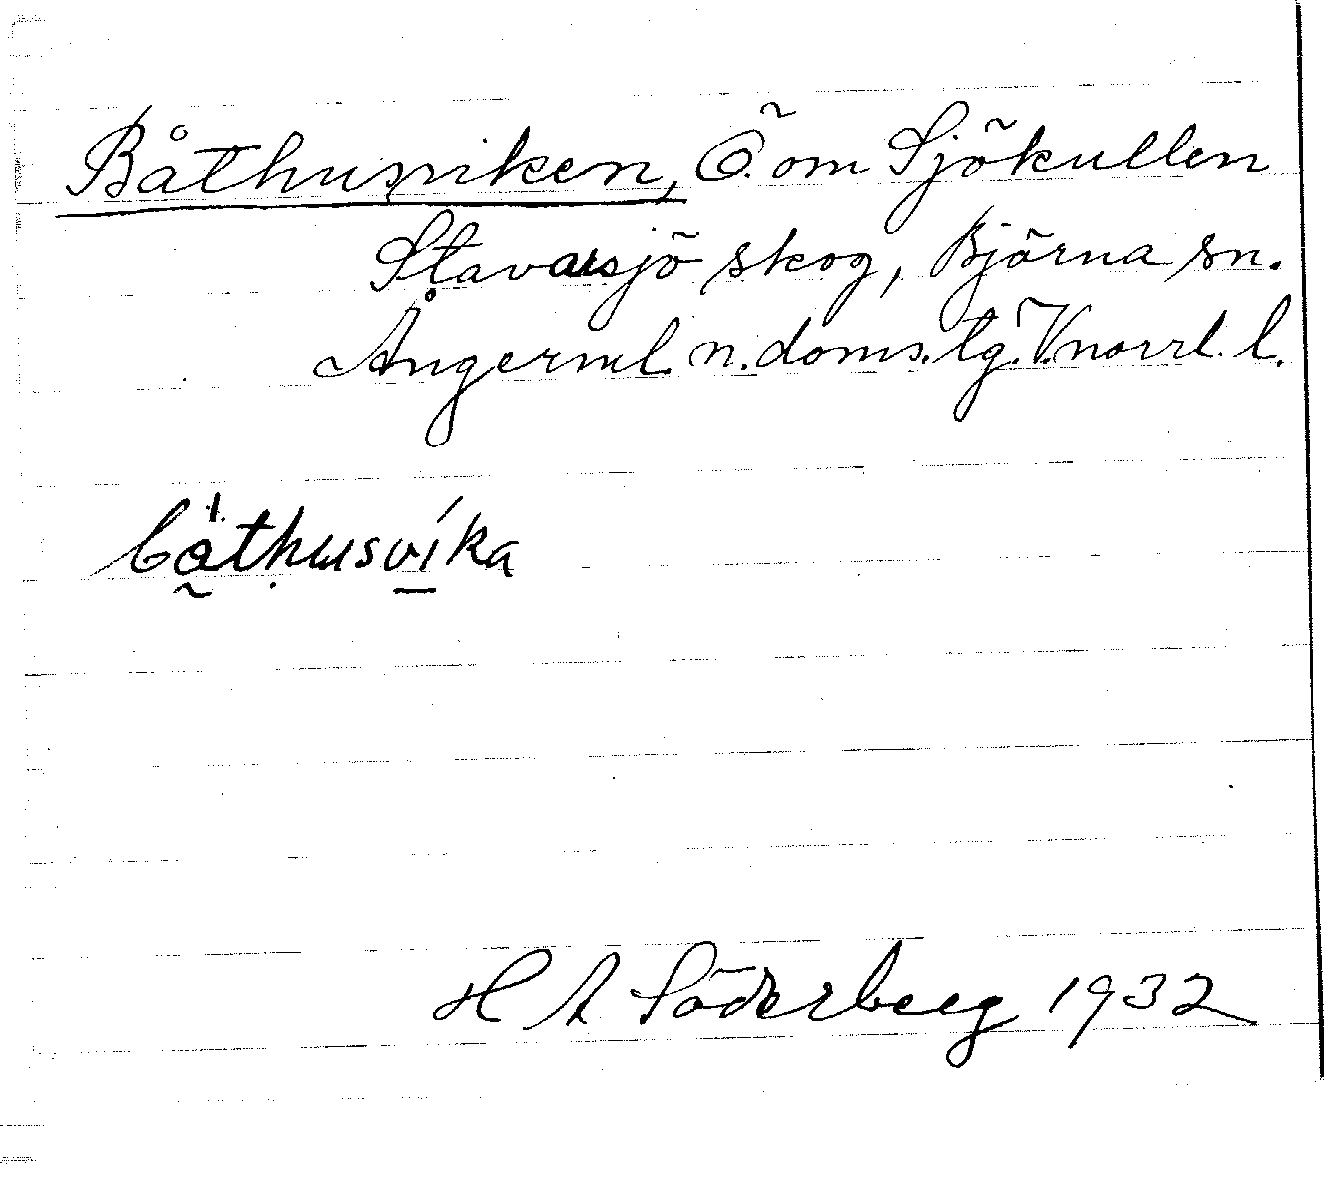 Båthusviken, Ö. om Sjökullen
Stavarsjö skog, Björna sn.
Ångerml. n. doms. tg. V.norrl. l.
båthusvika
H A Söderberg 1932